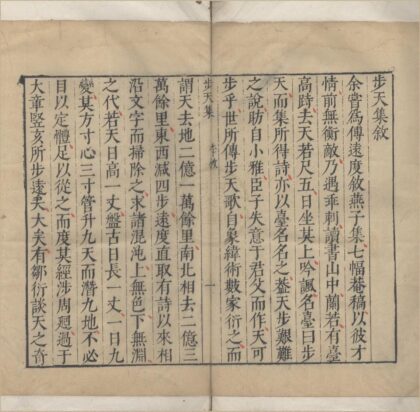 步天集敘
余嘗為傅遠度敘燕子集七幅菴稿以彼才
情前無衡敵乃遇乖刺讀書山中蘭若有臺
高時去天若尺五日坐其上吟諷名臺曰步
天而集所得詩亦以臺名名之蓋天步艱難
之說昉自小雅臣子失意于君父而作天可
步乎世所傳步天歌自象緯術數家衍之而
步天集 李敘 一
謂天去地二億一萬餘里南北相去二億三
萬餘里東西減四步遠度直取有詩以來相
沿文字而掃除之求諸混沌上無色下無淵
之代若天日高一丈盤古日長一丈一日九
變其方寸心三寸管升九天而潛九地不必
目以定體足以從之而度其經涉周𢌞過于
大章竪亥所步遠矣大矣有鄒衍談天之奇